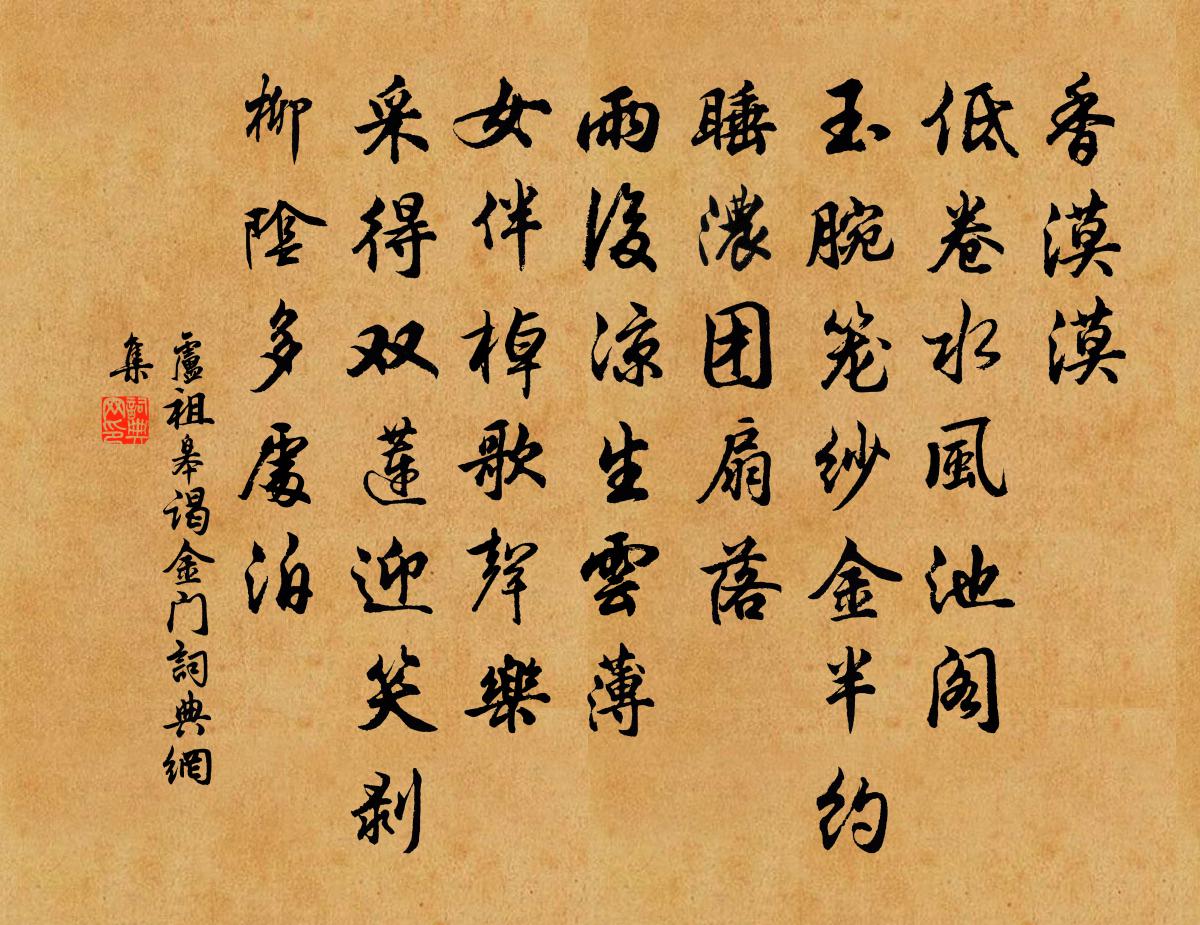 香漠漠
低卷水風池阁
玉腕笼纱金半约
睡濃团扇落
雨後凉生雲薄
女伴棹歌聲樂
采得双蓮迎笑剥
柳陰多處泊
盧祖皋谒金门詞典網
集
詞典網印